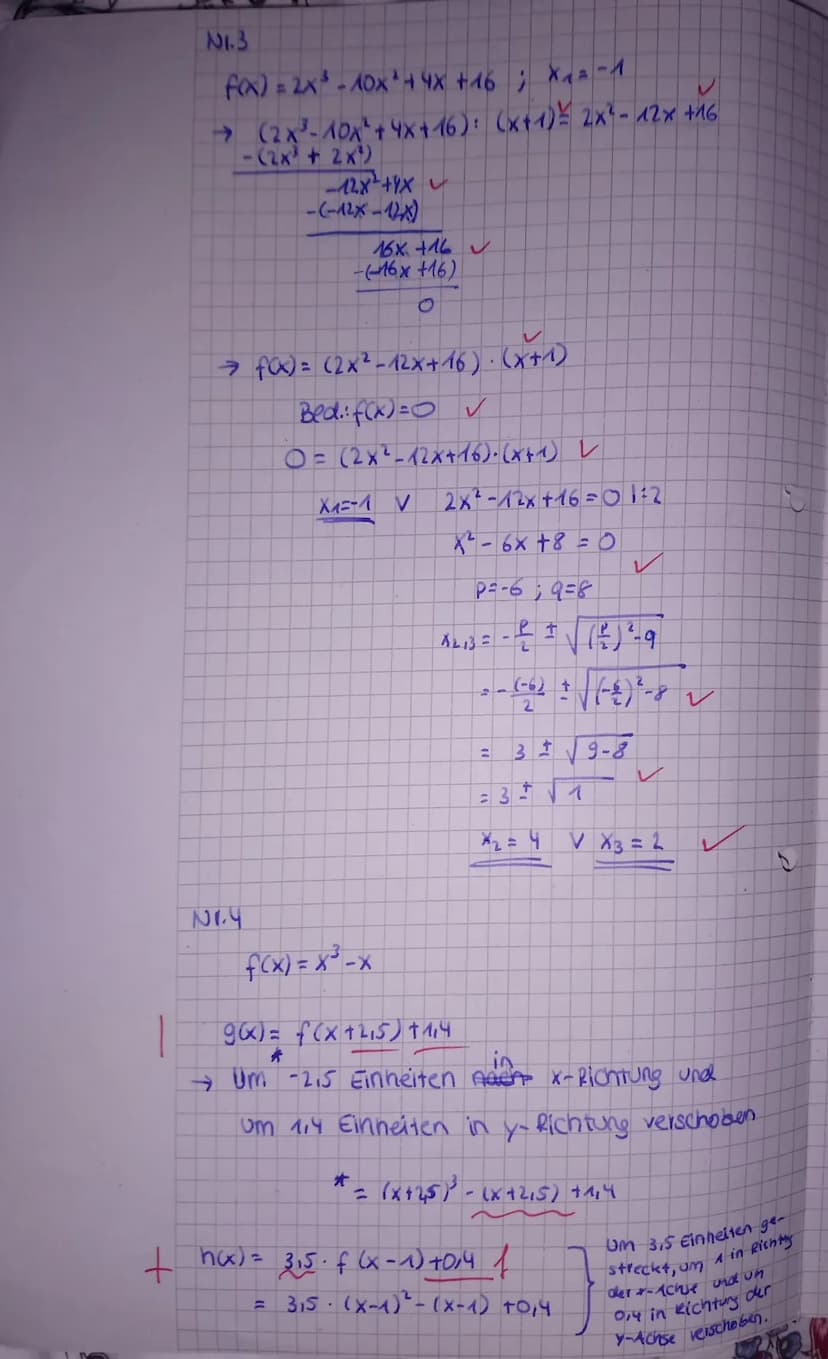 Nr.3
f(x) = 2x³ - 10x² + 4x + 16 ; x₁ = -1
→ (2x³ - 10x² + 4x + 16) : (x+1) = 2x² - 12x + 16
-(2x³ + 2x²)
-12x² + 4x
-(-12x - 12x)
16x + 16
-(-16x + 16)
0
→ f(x) = (2x² - 12x + 16) · (x+1)
Bed.: f(x) = 0
0 = (2x² - 12x + 16) · (x+1)
x₁ = -1 ∨ 2x² - 12x + 16 = 0 | :2
x² - 6x + 8 = 0
p = -6 ; q = 8
x₂,₃ = - p/2 ± √((p/2)² - q)
= - (-6)/2 ± √((-6/2)² - 8)
= 3 ± √(9-8)
= 3 ± √1
x₂ = 4 ∨ x₃ = 2
Nr.4
f(x) = x³ - x
| g(x) = f(x + 2,5) + 1,4
*
→ Um -2,5 Einheiten in x-Richtung und
um 1,4 Einheiten in y-Richtung verschoben
* = (x+2,5)³ - (x+2,5) + 1,4
h(x) = 3,5 · f(x-1) + 0,4 f
= 3,5 · (x-1)² - (x-1) + 0,4
Um 3,5 Einheiten ge-
streckt, um 1 in Richtg
der x-Achse und um
0,4 in Richtung der
y-Achse verschoben.